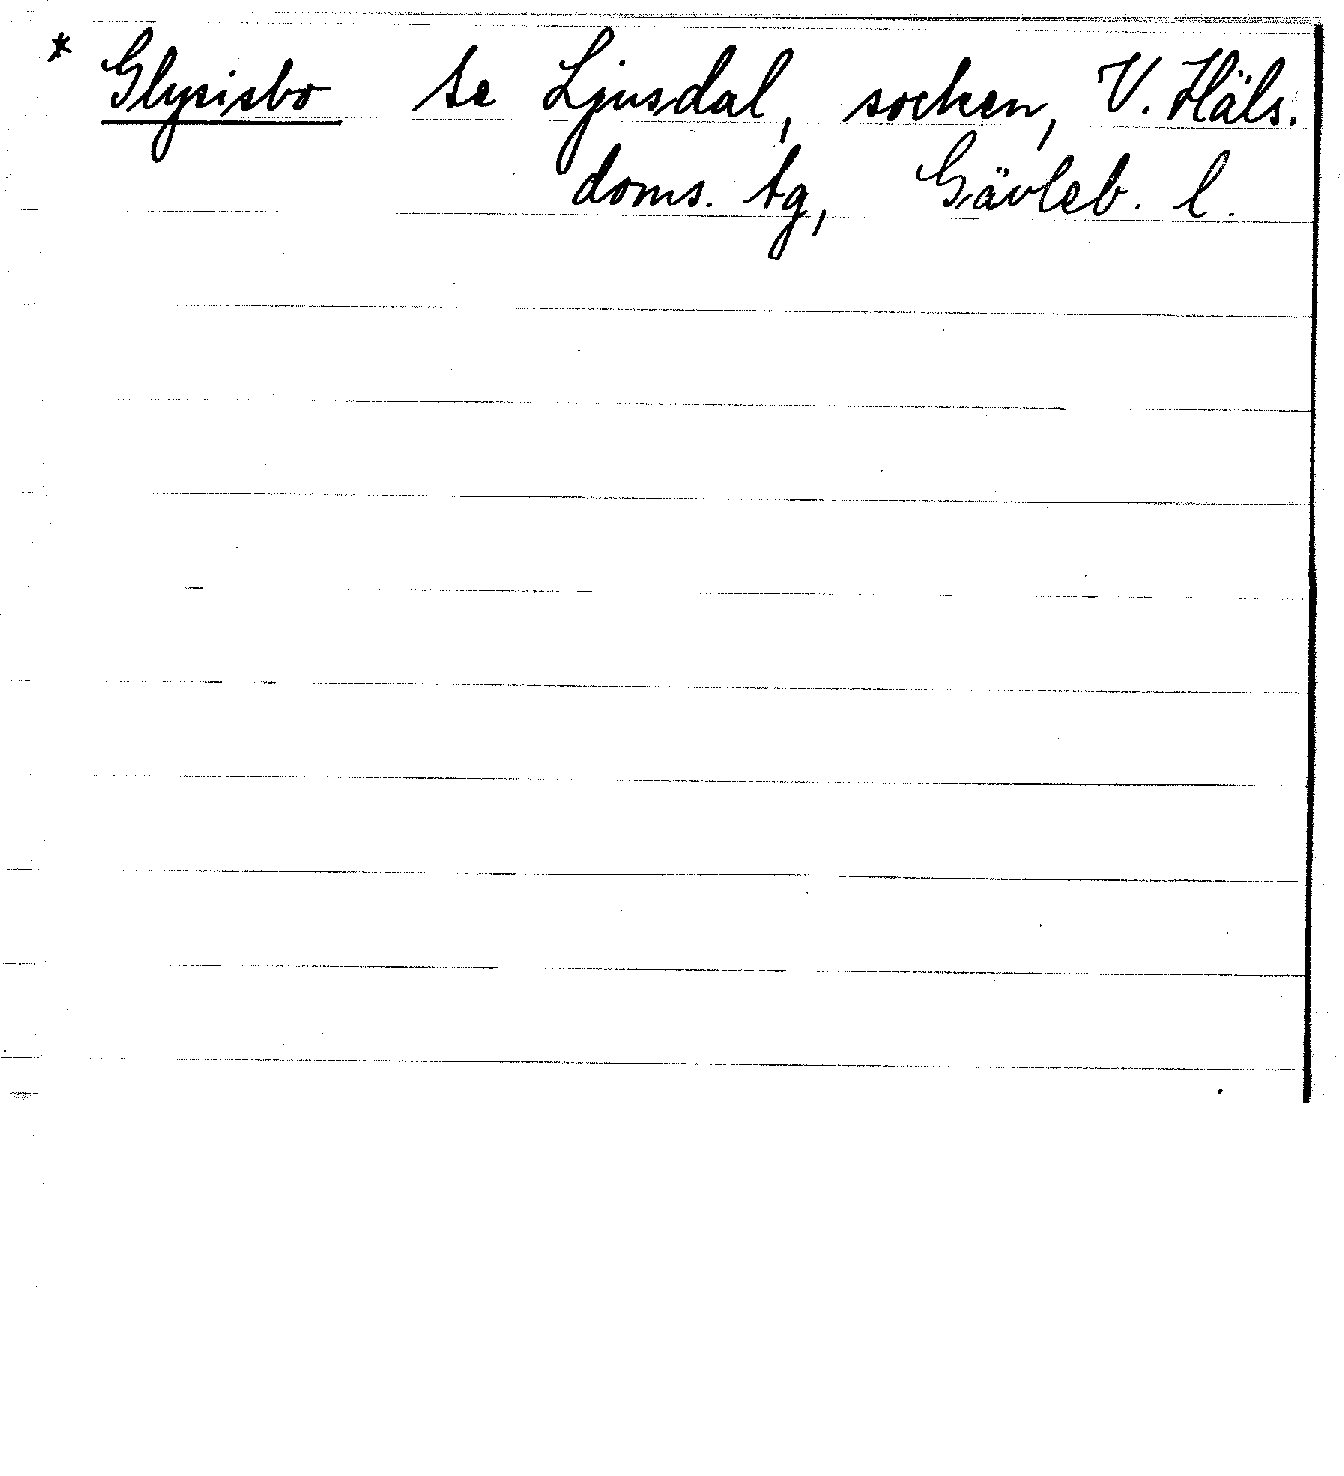 * Glysisbo se Ljusdal, socken, V. Häls.
doms. tg, Gävleb. l.